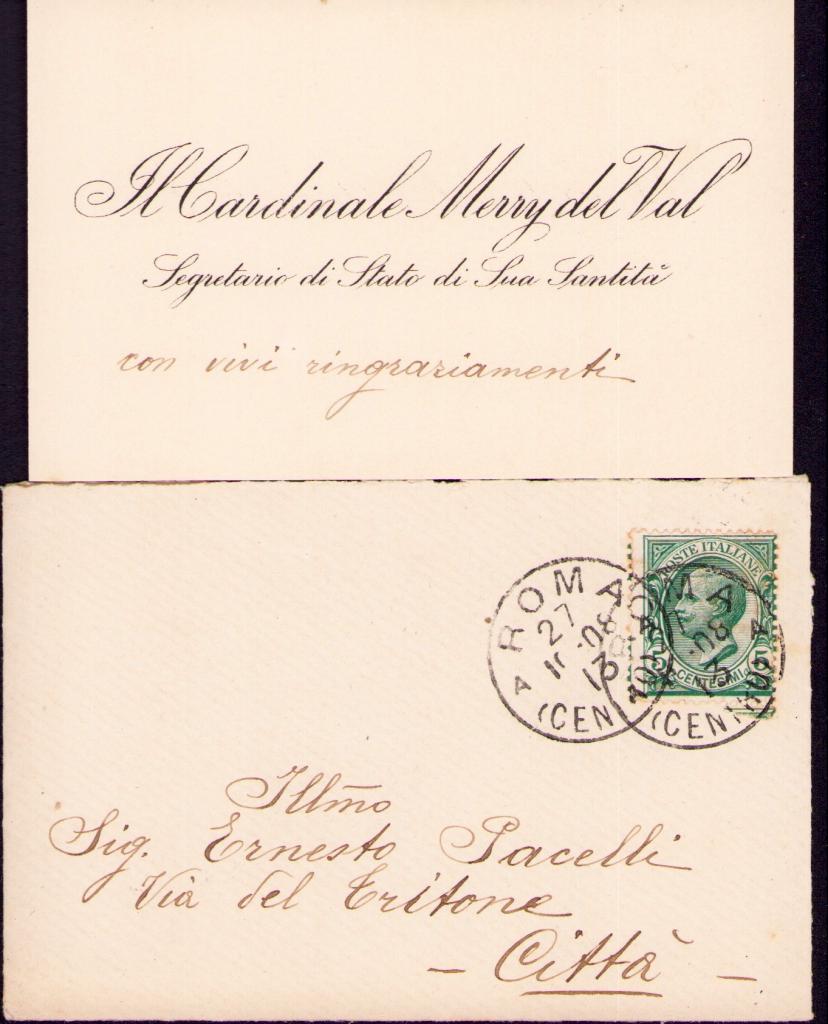 Il Cardinale Merry del Val
Segretario di Stato di Sua Santità
con vivi ringraziamenti
POSTE ITALIANE
5 CENTESIMI 5
ROMA
27
08
13
(CEN
ROMA
08
13
(CENT
Illm̃o
Sig. Ernesto Pacelli
Via del Tritone
— Città —